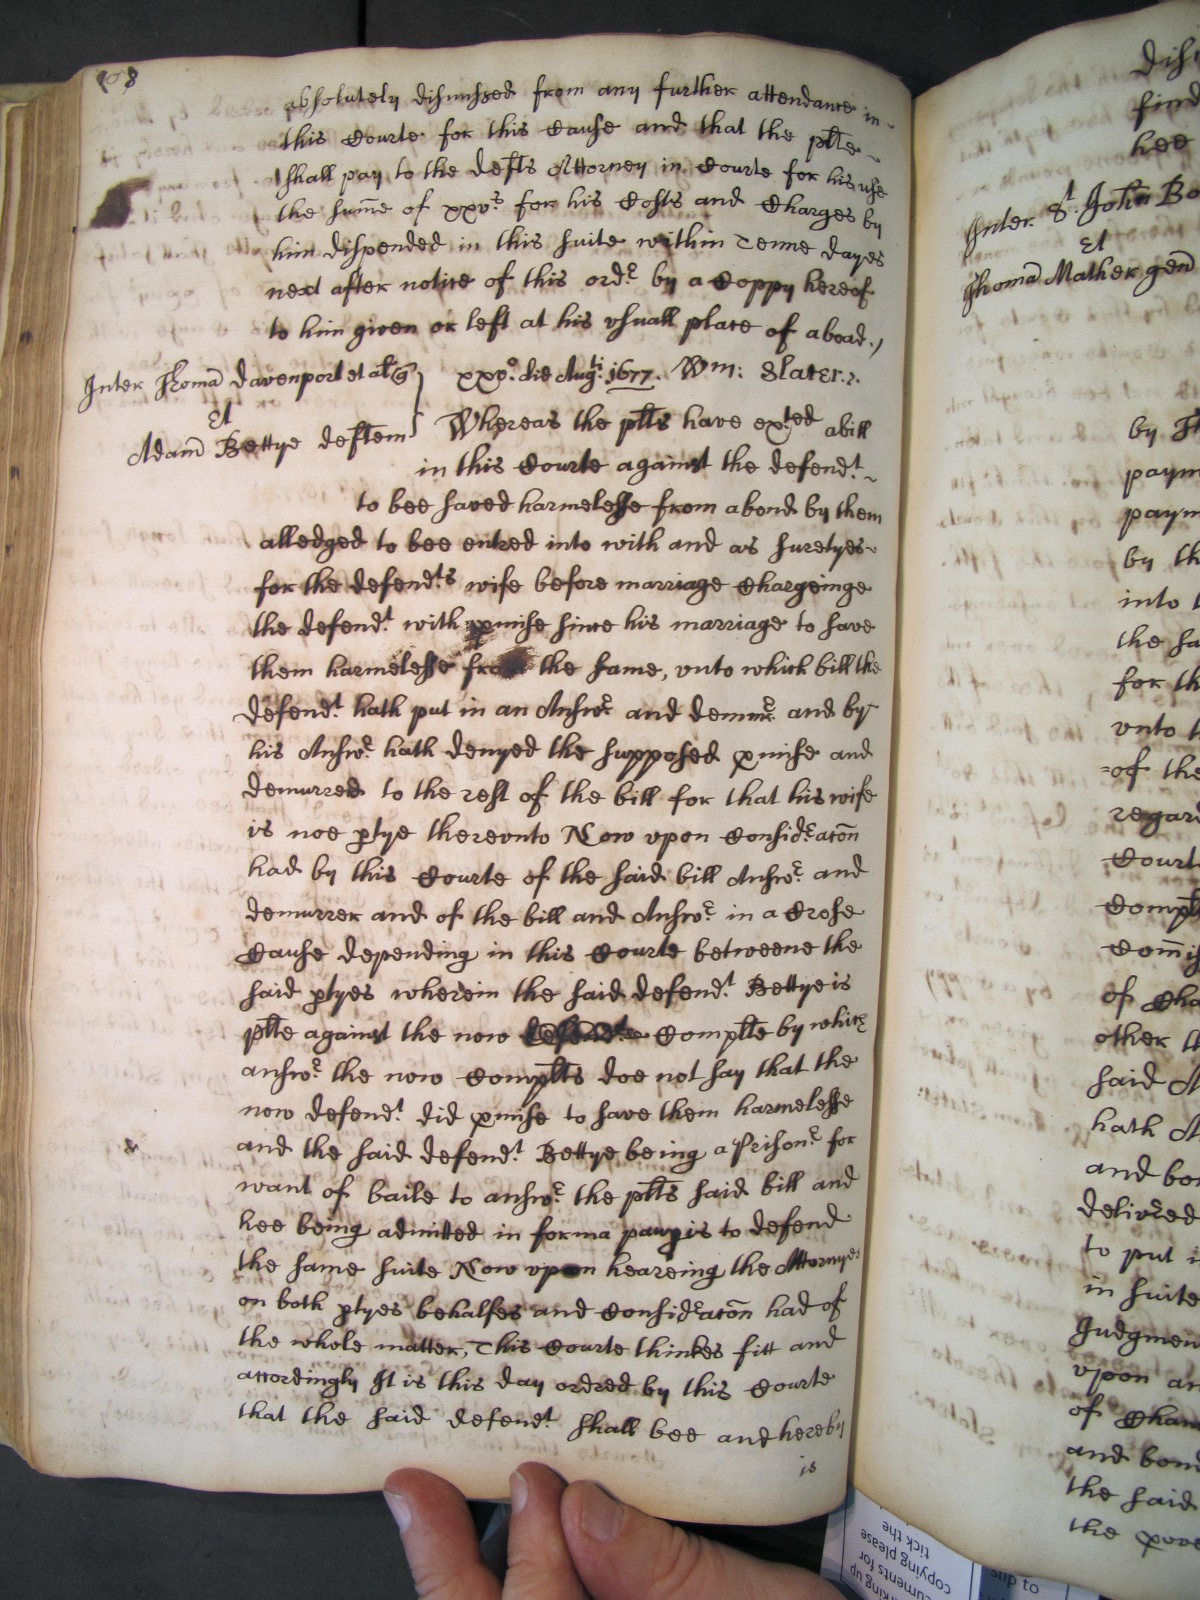 108
absolutely dismissed from any further attendance in
this Courte for this Cause and that the plte
shall pay to the defts Attorney in Courte for his use
the sum̄e of xxvs for his Costs and Charges by
him dispended in this suite within Tenne dayes
next after notice of this ordr by a Coppy hereof
to him given or left at his vsuall place of aboad./
Inter Thomā Davenport et al Q
xxxo. die Augti 1677. Wm: Slater:.
Et
Adam̄ Bettye deftem
Whereas the plts have exted a bill
in this Courte against the defendt
to bee saved harmelesse from a bond by them
alledged to bee entred into with and as suretyes
for the defendts wife before marriage Chargeinge
the defendt with pmise since his marriage to save
them harmelesse from the same, vnto which bill the
defendt hath put in an Answr and demurr and by
his Answr hath denyed the supposed pmise and
demurred to the rest of the bill for that his wife
is noe ptye therevnto Now vpon Considracōn
had by this Courte of the said bill Answr and
demurrer and of the bill and Answr in a Crosse
Cause depending in this Courte betweene the
said ptyes wherein the said defendt Bettye is
plte against the now Complte by which
answr the now Complts doe not say that the
now defendt did pmise to save them harmelesse
and the said defendt Bettye being a Prisonr for
want of baile to answr the plts said bill and
hee being admitted in forma paupis to defend
the same suite Now vpon heareing the Attornyes
on both ptyes behalfes and Considracōn had of
the whole matter, This Courte thinkes fitt and
accordingly It is this day ordred by this Courte
that the said defendt shall bee and hereby
is
dis
find
hee
Inter St. John Bo
Et
Thomā Mather gen̄
by
paym
paym
by th
into
the sa
for th
vnto
of the
regar
Court
Compl
Com̄i
of Cha
other
said A
hath A
and bo
delivred
to put i
in suite
Judgmen
vpon an
of Chan
and bond
the said
the
tick the
copying please
cuments for